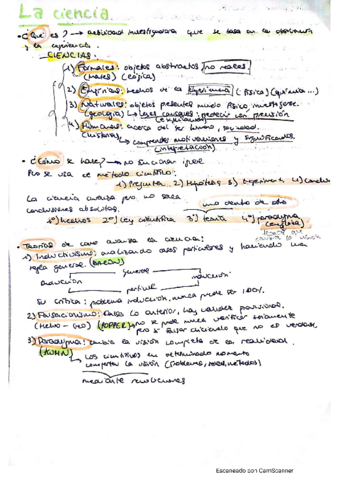 La ciencia.
• ¿Qué es? → actividad investigadora que se basa en la
y la experiencia.
CIENCIAS
1) Formales: objetos abstractos, no reales
(mates) (lógica)
2) Empíricas: hechos de la experiencia (física) (química...)
3) Naturales: objetos presentes mundo físico,
(geología) → leyes causales: predecir con previsión
(explicación)
4) Humanas: acerca del ser humano, sociedad.
(historia) → comprende motivaciones y significados
(interpretación)
• ¿Cómo se hace? → no funciona igual
Pero se usa el método científico:
1) Pregunta 2) Hipótesis 3) Experimento 4) Conclus
La ciencia avanza pero no saca
conclusiones absolutas. uno dentro de otro
1º hechos 2º ley científica 3º teoría 4º paradigma
(completa)
• Teorías de como avanza la ciencia:
1) Inductivismo: analizando casos particulares y haciendo una
regla general (BACON)
general
deducción inducción
particular
Su crítica: problema inducción, nunca puede ser 100%.
2) Falsacionismo: falso lo anterior, hay validez provisional.
(Helio - Geo) (POPPER) → no se puede nunca verificar totalmente
pero si falsar diciendo que no es verdad.
3) Paradigma: cambia la visión completa de la realidad.
(KUHN) → Los científicos en determinado momento
comparten la visión (problemas, métodos)
mediante revoluciones
Escaneado con CamScanner